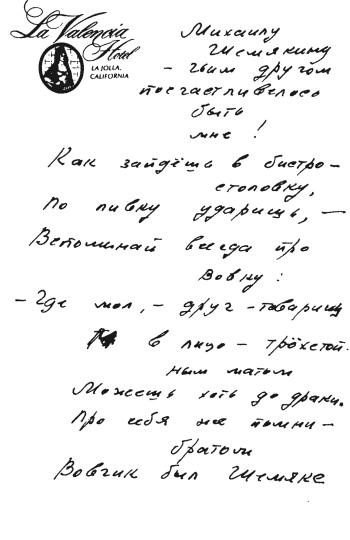 La Valencia
Hotel
LA JOLLA,
CALIFORNIA
Михаилу
Шемякину
- чьим другом
посчастливелось
быть
мне!
Как зайдёшь в бистро-
столовку,
По пивку ударишь, —
Вспоминай всегда про
Вовку:
- Где мол, - друг-товарищ
в лицо - трёхстой-
ным матом
Можешь хоть до драки.
Про себя же помни -
братом
Вовчик был Шемяке